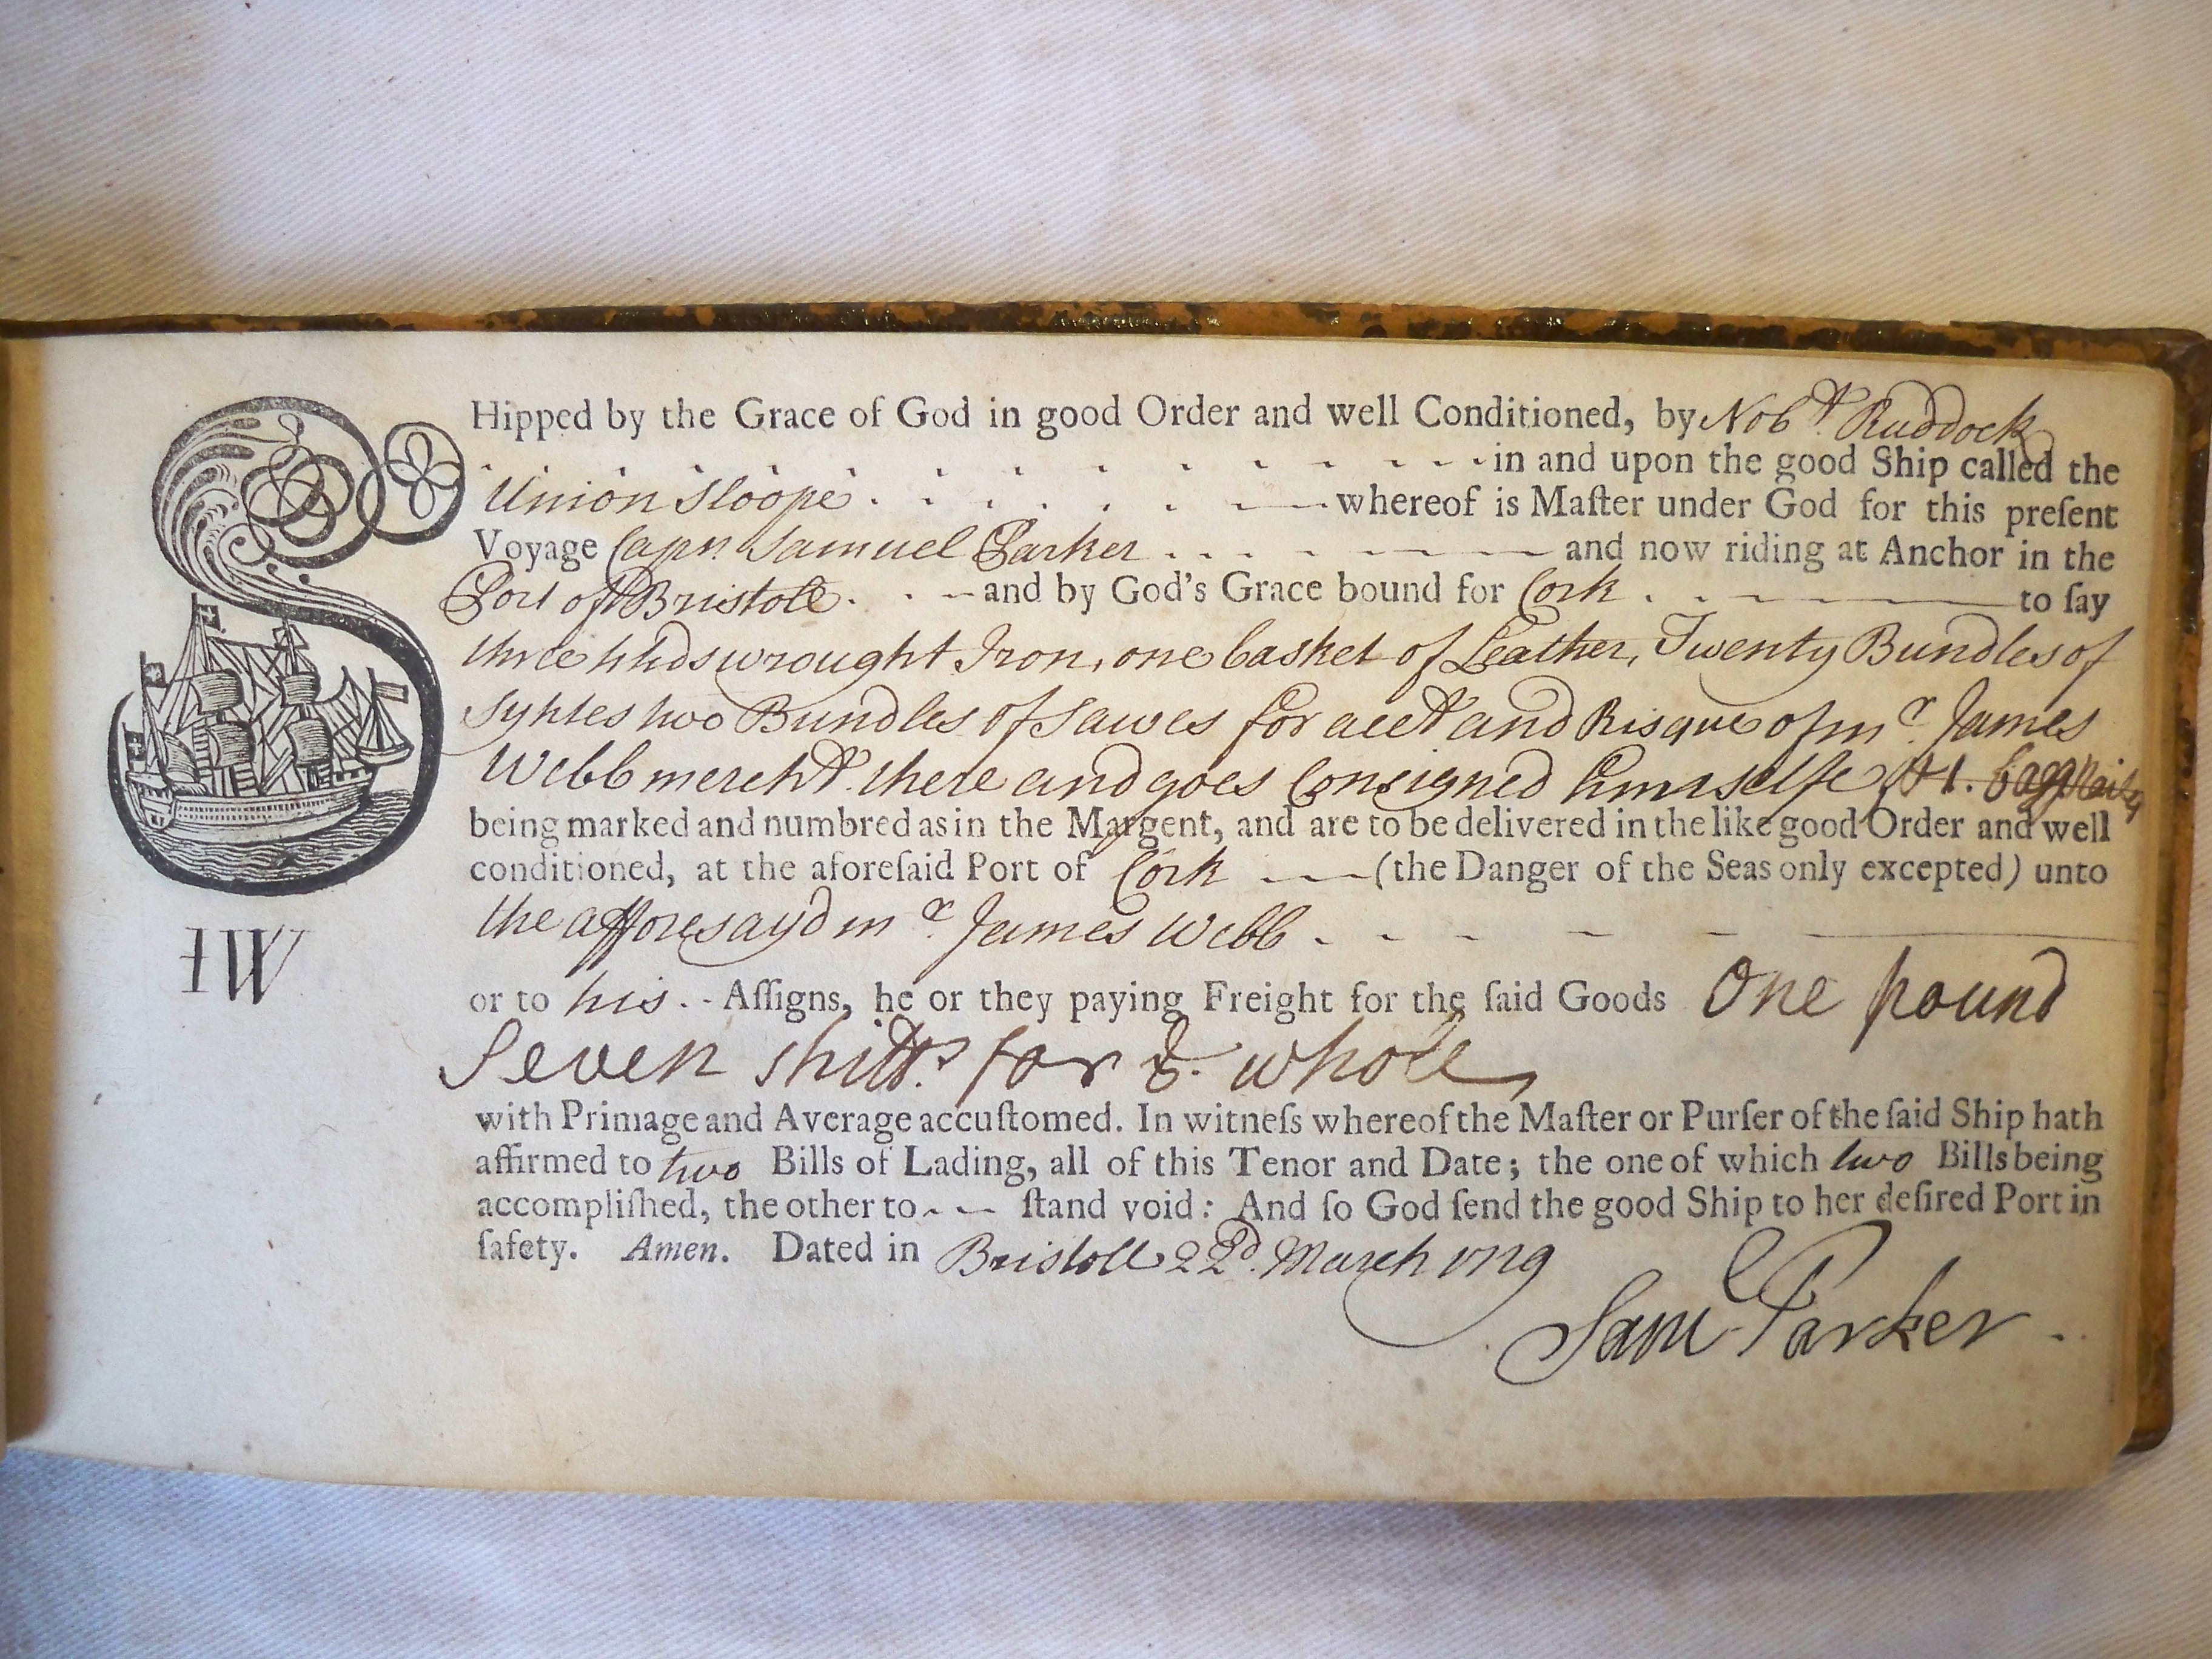 SHipped by the Grace of God in good Order and well Conditioned, by Nobt. Ruddock
in and upon the good Ship called the
Union Sloope whereof is Maſter under God for this preſent
Voyage Capn. Samuel Parker and now riding at Anchor in the
Port of Bristoll and by God's Grace bound for Cork to ſay
three hhds wrought Iron, one basket of Leather, Twenty Bundles of
sythes two Bundles of Sawes for acct and Risque of mr. James
Webb mercht. there and goes Consigned himselfe
being marked and numbred as in the Margent, and are to be delivered in the like good Order and well
conditioned, at the aforeſaid Port of Cork (the Danger of the Seas only excepted) unto
the afforesayd mr. James Webb
IW
or to his Aſſigns, he or they paying Freight for the ſaid Goods One pound
Seven shills. for ye. whole
with Primage and Average accuſtomed. In witneſs whereof the Maſter or Purſer of the ſaid Ship hath
affirmed to two Bills of Lading, all of this Tenor and Date; the one of which two Bills being
accompliſhed, the other to ſtand void: And ſo God ſend the good Ship to her deſired Port in
ſafety. Amen. Dated in Bristoll 22d. March 1719
Saml Parker